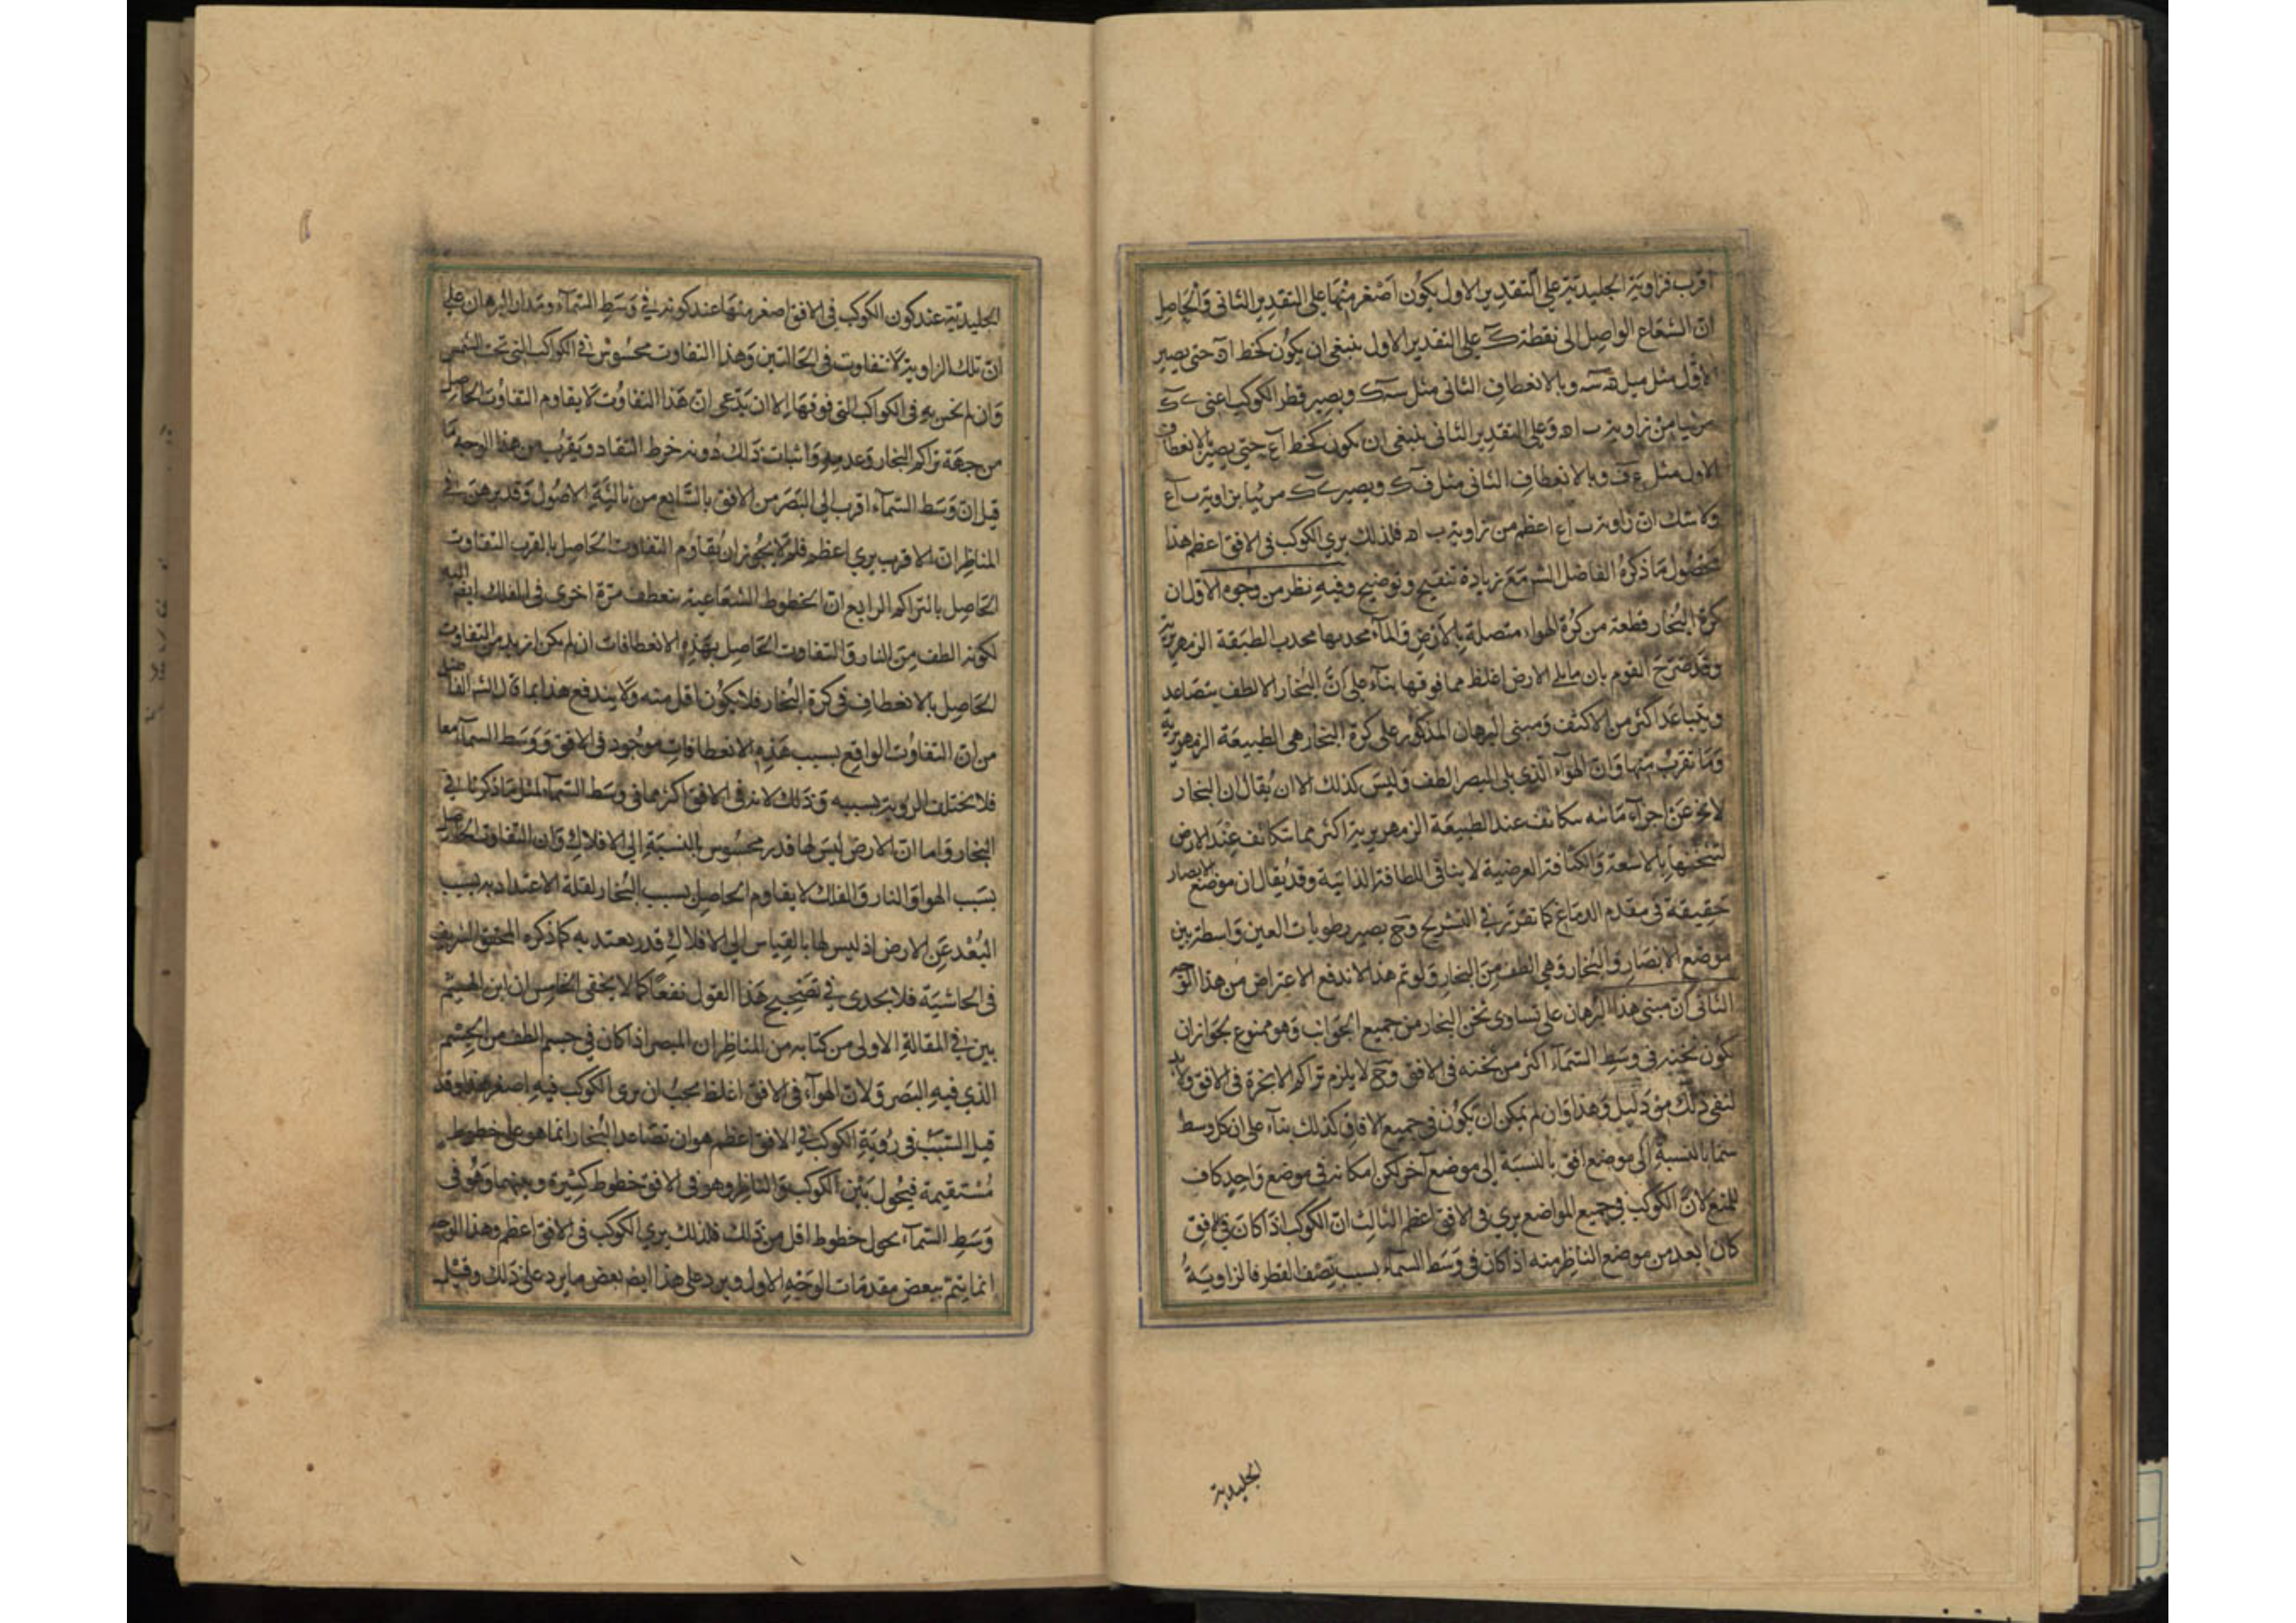 اقرب فزاوية الجليدية على التقدير الاول يكون اصغر منها على التقدير الثانى والحاصل
ان الشعاع الواصل الى نقطة ك على التقدير الاول ينبغى ان يكون كخط اه حتى يصير
الاول مثل ميل ويالانعطاف الثانى مثل ويصير قطر الكوكب اعنى
مرئيا من زاوية ب اه وعلى التقدير الثانى ينبغى ان يكون كخط اع حتى يصير بالانعطاف
الاول مثل ع ف وبالانعطاف الثانى مثل ف ك ويصير مرئيا بزاوية ب اع
ولا شك ان زاوية ب اع اعظم من زاوية ب اه فلذلك يرى الكوكب فى الافق اعظم هذا
محصول ما ذكره الفاضل الشر مع زيادة تنقيح وتوضيح وفيه نظر من وجوه الاول ان
كرة البخار قطعة من كرة الهواء متصلة بالارض والمآء محدبها محدب الطبقة الزمهريرية
وقد صرح القوم بان ما يلى الارض اغلظ مما فوقها بنآء على ان البخار الالطف يتصاعد
ويتباعد اكثر من الاكثف ومبنى البرهان المذكور على كرة البخار هى الطبيعة الزمهريرية
وما تقرب منها وان الهوآء الذى يلى البصر الطف وليس كذلك الا ان يقال ان البخار
لا يخ عن اجزآء مائيه تتكاثف عند الطبيعة الزمهريرية اكثر مما تتكاثف عند الارض
لتسخنها بالاشعة والكثافة العرضية لا ينافى اللطافة الذاتية وقد يقال ان موضع الابصار
حقيقة فى مقدم الدماغ كما تقرر فى التشريح وح يصير رطوبات العين واسطة بين
موضع الابصار والبخار وهى الطف من البخار ولو تم هذا لاندفع الاعتراض من هذا الوجه
الثانى ان مبنى هذا البرهان على تساوى ثخن البخار من جميع الجوانب وهو ممنوع لجواز ان
يكون ثخنه فى وسط السمآء اكثر من ثخنه فى الافق وح لا يلزم تراكم الابخرة فى الافق ولابد
لنفى ذلك من دليل وهذا وان لم يمكن ان يكون فى جميع الافاق كذلك بنآء على ان كل وسط
سما بالنسبة الى موضع افق بالنسبة الى موضع آخر لكن امكانه فى موضع واحد كاف
للمنع لان الكوكب فى جميع المواضع يرى فى الافق اعظم الثالث ان الكوكب اذا كان فى الافق
كان ابعد من موضع الناظر منه اذا كان فى وسط السمآء بسبب نصف القطر فالزاوية
الجليدية
الجليدية عند كون الكوكب فى الافق اصغر منها عند كونه فى وسط السمآء ومدار البرهان على
ان تلك الزاوية لا تتفاوت فى الحالتين وهذا التفاوت محسوس فى الكواكب التى تحت الشمس
وان لم يحس به فى الكواكب التى فوقها الا ان يدعى ان هذا التفاوت لا يقاوم التفاوت الحاصل
من جهة تراكم البخار وعدمه واثبات ذلك دونه خرط القتاد ويقرب من هذا الوجه ما
قيل ان وسط السمآء اقرب الى البصر من الافق بالسابع من ثالثة الاصول وقد برهن فى
المناظر ان الاقرب يرى اعظم فلم لا يجوز ان يقاوم التفاوت الحاصل بالقرب التفاوت
الحاصل بالتراكم الرابع ان الخطوط الشعاعية تنعطف مرة اخرى فى الفلك ايضا
لكونه الطف من النار والتفاوت الحاصل بهذه الانعطافات ان لم يكن ازيد من التفاوت
الحاصل بالانعطاف فى كرة البخار فلا يكون اقل منه ولا يندفع هذا بما قال الشر الفاضل
من ان التفاوت الواقع بسبب هذه الانعطافات موجود فى الافق ووسط السمآء معا
فلا يختلف الرؤية بسببه وذلك لانه فى الافق اكثر مما فى وسط السمآء لمثل ما ذكرنا فى
البخار واما ان الارض ليس لها قدر محسوس بالنسبة الى الافلاك وان التفاوت الحاصل
بسبب الهوا والنار والفلك لا يقاوم الحاصل بسبب البخار لقلة الاعتداد به بسبب
البعد عن الارض اذ ليس لها بالقياس الى الافلاك قدر يعتد به كما ذكره المحقق الشريف
فى الحاشية فلا يجدى فى تصحيح هذا القول نفعا كما لا يخفى الخامس ان ابن الهيثم
بين فى المقالة الاولى من كتابه من المناظر ان المبصر اذا كان فى جسم الطف من الجسم
الذي فيه البصر ولان الهوآء فى الافق اغلظ يجب ان يرى الكوكب فيه اصغر هذا وقد
قيل السبب فى رؤية الكوكب فى الافق اعظم هو ان تصاعد البخار انما هو على خطوط
مستقيمة فيحول بين الكوكب والناظر وهو فى الافق خطوط كثيرة وبينهما وهو فى
وسط السمآء يحول خطوط اقل من ذلك فلذلك يرى الكوكب فى الافق اعظم وهذا الوجه
انما يتم ببعض مقدمات الوجه الاول ويرد على هذا ايضا بعض ما يرد على ذلك وقيل